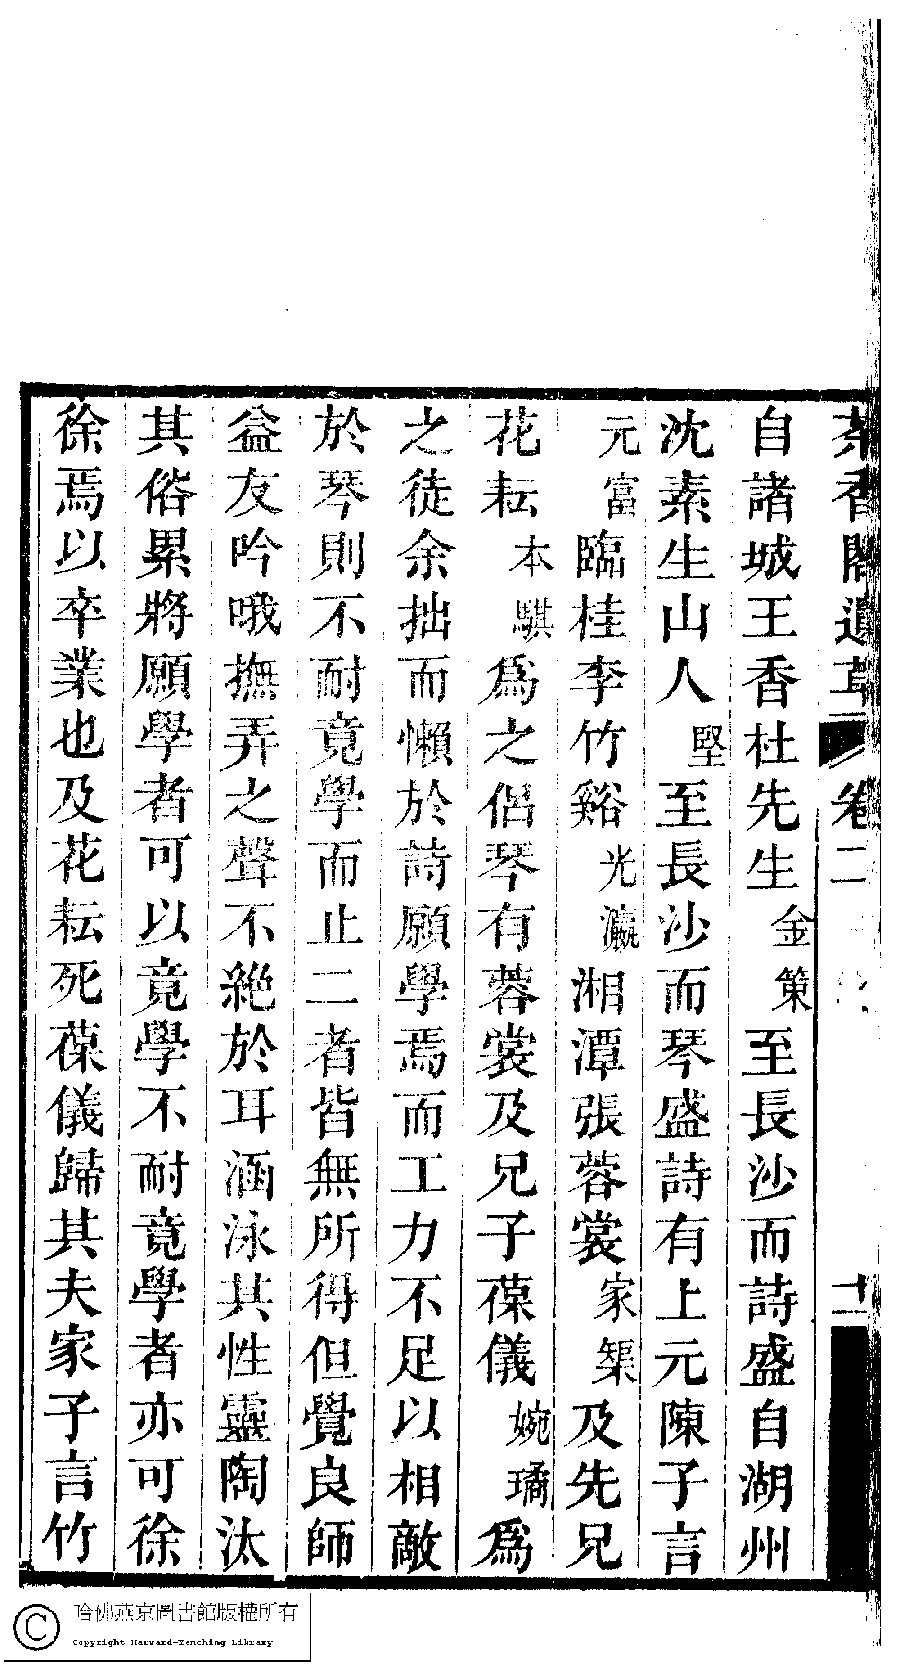 茶香閣遺草 卷二 十一
自諸城王香杜先生金策至長沙而詩盛自湖州
沈素生山人堅至長沙而琴盛詩有上元陳子言
元富臨桂李竹谿光瀛湘潭張蓉裳家榘及先兄
花耘本騏爲之侶琴有蓉裳及兄子葆儀婉璚爲
之徒余拙而懶於詩願學焉而工力不足以相敵
於琴則不耐竟學而止二者皆無所得但覺良師
益友吟哦撫弄之聲不絕於耳涵泳其性靈陶汰
其俗累將願學者可以竟學不耐竟學者亦可徐
徐焉以卒業也及花耘死葆儀歸其夫家子言竹
哈佛燕京圖書館版權所有
Copyright Harvard-Yenching Library